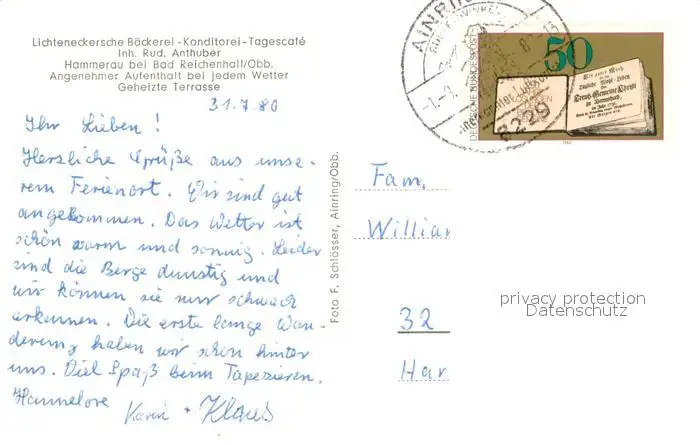 Lichteneckersche Bäckerei - Konditorei - Tagescafé
Inh. Rud. Anthuber
Hammerau bei Bad Reichenhall/Obb.
Angenehmer Aufenthalt bei jedem Wetter
Geheizte Terrasse
31.7.80
Ihr Lieben!
Herzliche Grüße aus unse-
rem Ferienort. Wir sind gut
angekommen. Das Wetter ist
schön warm und sonnig. Leider
sind die Berge dunstig und
wir können sie nur schwach
erkennen. Die erste lange Wan-
derung haben wir schon hinter
uns. Viel Spaß beim Tapezieren.
Hannelore Karin + Klaus
Foto F. Schlösser, Ainring/Obb.
AINRING
8229
DEUTSCHE BUNDESPOST
50
Fam.
Willia
32
Har
privacy protection
Datenschutz